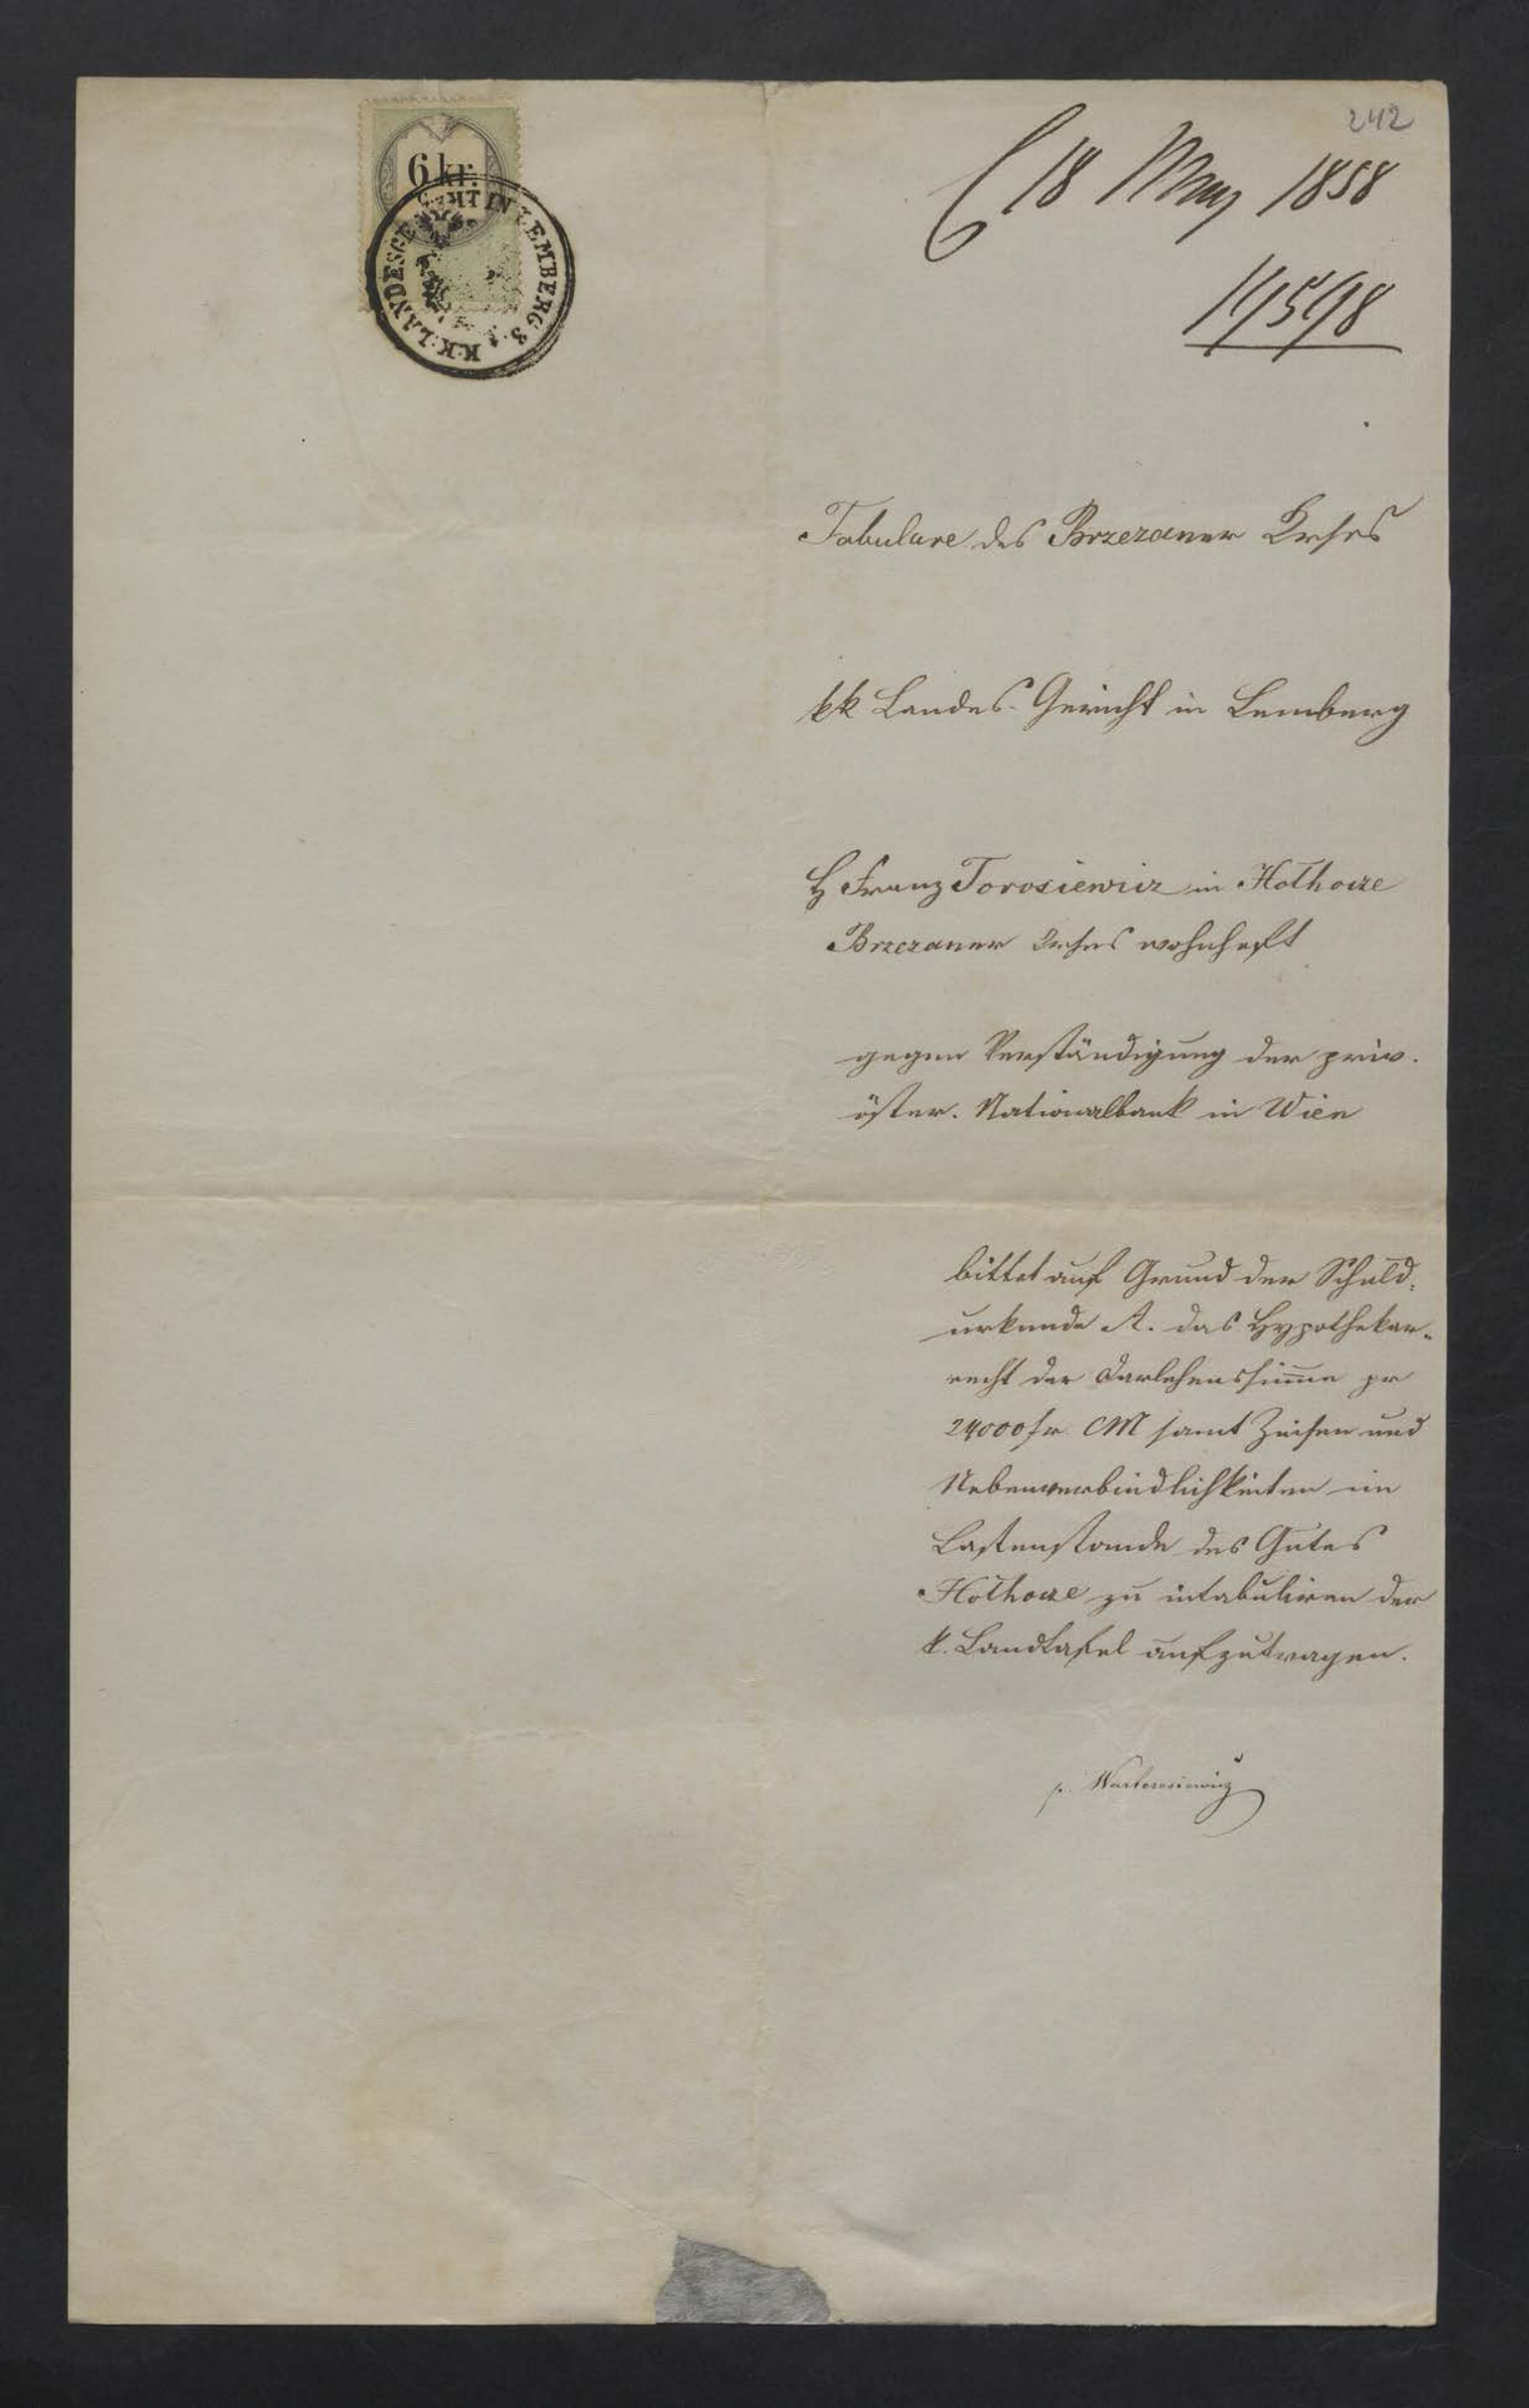 242
18 May 1858
19598
6 kr.
K.K. LANDESGE AMT IN LEMBERG 3.
Tabulare des Brzezaner Krses
kk Landes-Gericht in Lemberg
H Franz Torosiewicz in Hołhocze
Brzezaner Krses wohnhaft
gegen Verständigung der priv.
öster. Nationalbank in Wien
bittet auf Grund der Schuld-
urkunde A. das Hypothekar-
recht der Darlehenssum̄e pr
24000 fr CM samt Zinsen und
Nebenverbindlichkeiten im
Lastenstande des Gutes
Hołhocze zu intabuliren der
k. Landtafel aufzutragen.
Warteresiewicz